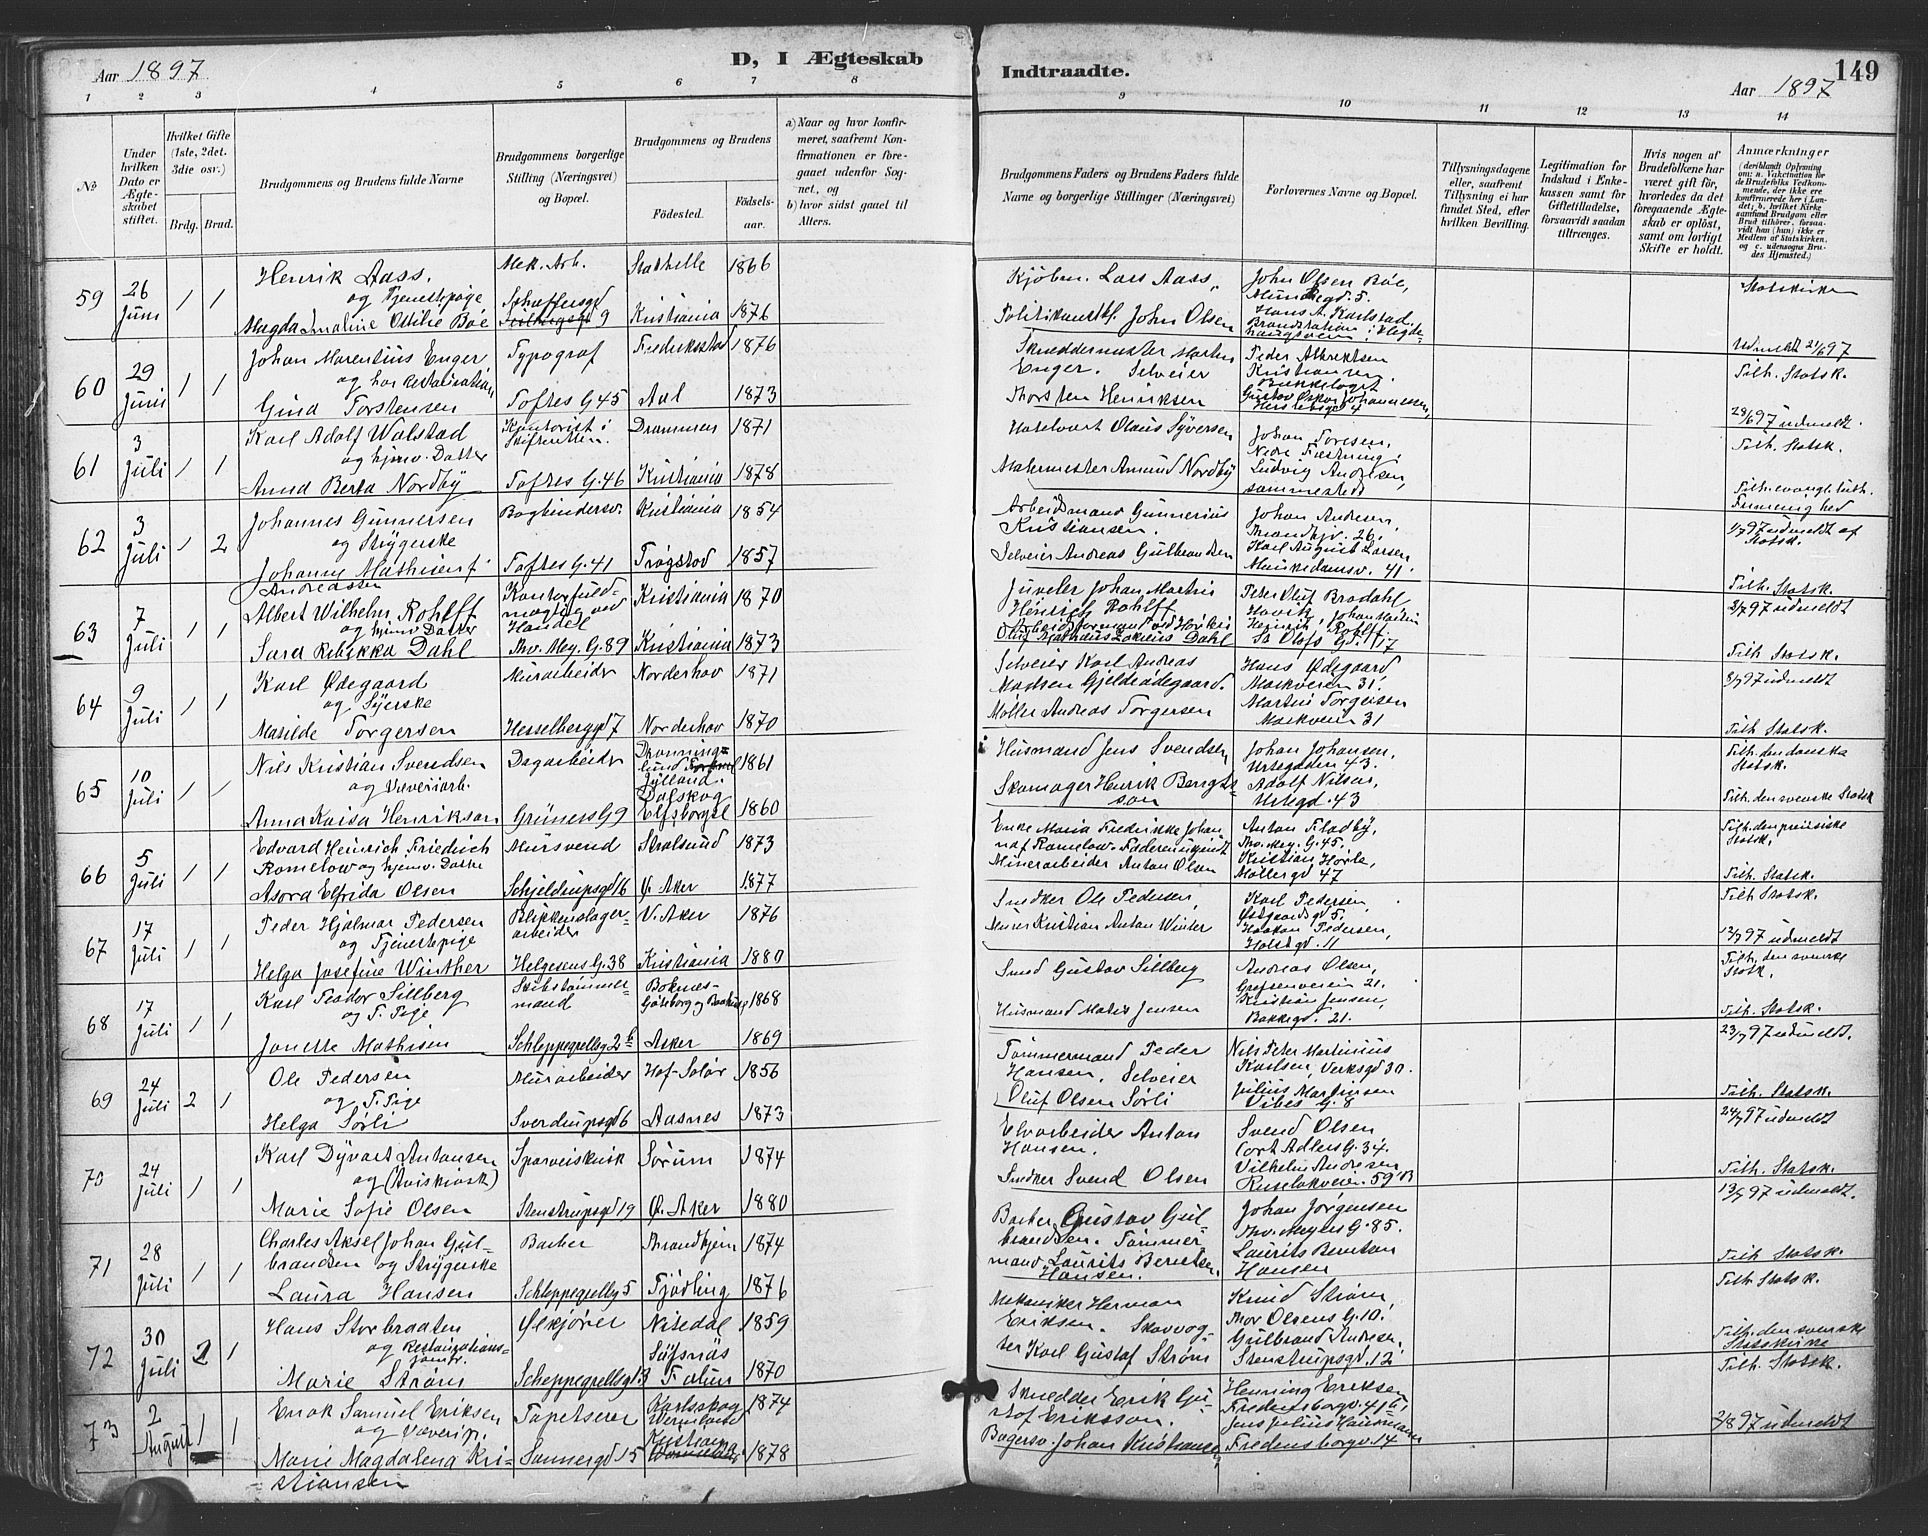 Aar 1897
D, I Ægteskab
Indtraadte.
149
Aar 1897
1 2 3 4 5 6 7 8 9 10 11 12 13 14
No
Under hvilken Dato er Ægteskabet stiftet.
Hvilket Gifte (1ste, 2det, 3die osv.)
Brdg. Brud.
Brudgommens og Brudens fulde Navne
Brudgommens borgerlige Stilling (Næringsvei) og Bopæl.
Brudgommens og Brudens
Fødested.
Fødselsaar.
a) Naar og hvor konfirmeret, saafremt Konfirmationen er foregaaet udenfor Sognet, og
b) hvor sidst gaaet til Alters.
Brudgommens Faders og Brudens Faders fulde Navne og borgerlige Stillinger (Næringsvei)
Forlovernes Navne og Bopæl.
Tillysningsdagene eller, saafremt Tillysning ei har fundet Sted, efter hvilken Bevilling.
Legitimation for Indskud i Enkekassen samt for Giftetilladelse, forsaavidt saadan tiltrænges.
Hvis nogen af Brudefolkene har været gift før, hvorledes da det foregaaende Ægteskab er opløst, samt om lovligt Skifte er holdt.
Anmærkninger
59
26 Juni
1 1
Henrik Aass,
og Tjenestepige
Magda Imaline Ottilie Bøe
Mek. Arb.
Schæffersgd 9
Stathelle 1866
Kristiania 1876
Kjøbm. Lars Aass,
Politikonstbl. John Olsen
John Olsen Bøe,
Munchsgd. 5.
Hans A. Karlstad.
Brandstation i Hegdehaugsveien
Statskirke
60
29 Juni
1 1
Johan Marentius Enger
og har Restauration,
Gina Torstensen
Typograf
Toftes G 45
Frederikstad 1876
Aal 1873
Skræddermester Martin
Enger. Selveier
Thorsten Henriksen
Peder Albrektsen
Kristiansen.
Bækkelaget
Gustav Oskar Johannessen,
Herslebsgd 4
Udmeldt 21/6 97
Tilh. Statsk.
61
3 Juli
1 1
Karl Adolf Walstad
og hjemv. Datter
Anna Berta Nordby
Kontorist i
Skifteretten.
Toftes G. 46
Drammen 1871
Kristiania 1878
Hotelvært Olaus Syversen
Malermester Amund Nordby
Johan Toresen,
Nedre Fæstning.
Ludvig Andresen,
sammesteds
28/6 97 udmeldt.
Tilh. Statsk.
62
3 Juli
1 2
Johannes Gunnersen
og Strygerske
Johanne Mathie f.
Andreassen
Bogbindersv.
Toftes G. 41
Kristiania 1854
Trøgstad 1857
Arbeidsmand Gunnerius
Kristiansen.
Selveier Andreas Gulbrandsen
Johan Andersen,
Thrandhjv. 26.
Karl August Larsen
Munkedamsv. 41.
Tilh. evangl. luth.
Frimenighed
1/7 97 udmeldt af
Statsk.
63
7 Juli
1 1
Albert Wilhelm Rohlff
og hjemv. Datter
Sara Rebekka Dahl
Kontorfuldmægtig ved
Handel
Thv. Mey. G. 89
Kristiania 1870
Kristiania 1873
Juveler Johan Martin
Heinrich Rohlff
Arbeidsformand ved Høvik
Oluf Mathæus Zakeus Dahl
Peter Oluf Brodahl
Høvik, Johan Martin
Heinrich Rohlff
St. Olafs Gd. 17
Tilh. Statsk.
2/7 97 udmeldt
64
9 Juli
1 1
Karl Ødegaard
og Syerske
Matilde Torgersen
Murarbeider
Hesselbergsgd 7
Norderhov 1871
Norderhov 1870
Selveier Karl Andreas
Madsen Gjeldsødegaard.
Møller Andreas Torgersen
Hans Ødegaard
Markveien 31.
Martin Torgersen
Markveien 31
Tilh. Statsk.
8/7 97 udmeldt
65
10 Juli
1 1
Nils Kristian Svendsen
og Væveriarb.
Anna Kaisa Henrikson
Dagarbeider
Grüners G 9
Dronninglund
Jylland. 1861
Dalskog
Elfsborgs l 1860
Husmand Jens Svendsen
Skomager Henrik Bengtsson
Johan Johansen,
Urtegaden 43.
Adolf Nilsen,
Urtegd. 43
Tilh. Statsk.
Tilh. den danske
Statsk.
Tilh. den svenske Statsk
66
5 Juli
1 1
Edvard Heinrich Friedrich
Romelow og hjemv. Datter
Asora Elfrida Olsen
Mursvend
Schjeldrupsgd 16
Stralsund 1873
Ø. Aker 1877
Enke Maria Frederikke Johan
naf Romelow. Faderen ukjendt
Minerarbeider Anton Olsen
Anton Fladby,
Thv. Mey. G. 45.
Kristian Hovle,
Møllergd 47
Tilh. den preisiske
Statsk.
Tilh. Statsk.
67
17 Juli
1 1
Peder Hjalmar Pedersen
og Tjenestepige
Helga Josefine Winther
Blikkenslagerarbeider
Helgesens G. 38
V. Aker 1876
Kristiania 1880
Snedker Ole Pedersen,
Murer Kristian Anton Winter
Karl Pedersen,
Østgaardsgd 5.
Haakon Pedersen,
Holstgd. 11
Tilh. Statsk.
12/7 97 udmeldt
68
17 Juli
1 1
Karl Teodor Sillberg
og T. Pige
Janette Mathisen
Skibstømmermand
Schleppegrellsg 2 b
Boknes-
Göteborg og Bohus 1868
Asker 1869
Smed Gustav Sillberg
Husmand Mates Jensen
Andreas Olsen,
Grefsenveien 21.
Kristian Jensen,
Bakkegd. 21.
Tilh. den svenske
Statsk.
Tilh. Statsk.
69
24 Juli
2 1
Ole Pedersen
og T. Pige
Helga Sørli
Murarbeider
Sverdrupsgd 6
Hof-Solør 1856
Aasnes 1873
Tømmermand Peder
Hansen. Selveier
Oluf Olsen Sørli
Nils Peter Martinius
Karlsen, Verksgd 30.
Julius Martinsen
Vibes G. 8
23/7 97 udmeldt.
Tilh. Statsk.
70
24 Juli
1 1
Karl Dyvart Antonsen
og (Aviskiosk)
Marie Sofie Olsen
Sporveiskusk
Stenstrupsgd 19
Sørum 1874
Ø. Aker 1880
Elvarbeider Anton
Hansen.
Snedker Svend Olsen
Svend Olsen
Cort Adlers G. 34.
Vilhelm Andresen
Ruseløkveien 59 B
24/7 97 udmeldt
Tilh. Statsk.
71
28 Juli
1 1
Charles Aksel Johan Gulbrandsen og Strygerske
Laura Hansen
Barber
Schleppegrellsg 5
Thrandhjem 1874
Tjødling 1876
Barber Gustav Gulbrandsen. Tømmermand Laurits Berntsen
Hansen.
Johan Jørgensen
Thv. Meyers G. 85.
Laurits Berntsen
Hansen
13/7 97 udmeldt.
Tilh. Statsk.
72
30 Juli
2 1
Hans Storbraaten
og Restaurationsjomfr.
Marie Strøm
Ølkjører
Scheppegrellsgd 13
Nitedal 1859
Säfsnäs
Falun 1870
Mekaniker Herman
Eriksen. Skovvogter Karl Gustaf Strøm
Knud Strøm,
Thor Olsens G. 10.
Gulbrand Andresen,
Stenstrupsgd. 12
Tilh. Statsk.
Tilh. den svenske
Statskirke
73
2 August
1 1
Enok Samuel Eriksen
og Væverip.
Marie Magdalena Kristiansen
Tapetserer
Sannergd 15
Karlskoga
Wermland 1874
Kristiania 1878
Skrædder Erik Gustaf Eriksson.
Bagersv. Johan Kristiansen
Henning Eriksen
Fredensborgv. 41 b.
Jens Julius Hansmann
Fredensborgv. 14
Tilh. Statsk.
2/8 97 udmeldt